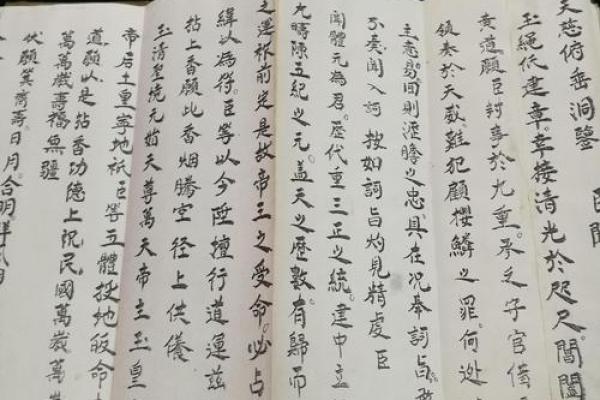 臣聞
天慈俯垂洞鑒
玉繩低建章。幸接清光於咫尺。閶闔
黃道願臣封事於九重。承之守官借
領奏於天威。難犯顧攖鱗之罪。何逃
主意。易回則瀝膽之忠。具在況奉詞旨。敢
不奏聞入詞 按如詞旨灼見精虔 臣
聞體元為君。歷代重三正之統。建中立
九疇陳五紀之元。蓋天之歷數。有歸而
之運祚前定是故帝王之受命。必占
緯以為符。臣等以今陞壇行道運茲
拈上香願此香烟騰空徑上供養
玉清聖境元始天尊萬天帝主玉皇
帝后土皇宇地祇臣等五體投地皈命
道願以是拈香功德上祝民國萬歲萬
萬萬歲壽福無疆
伏願箕齊壽日月。合明祥